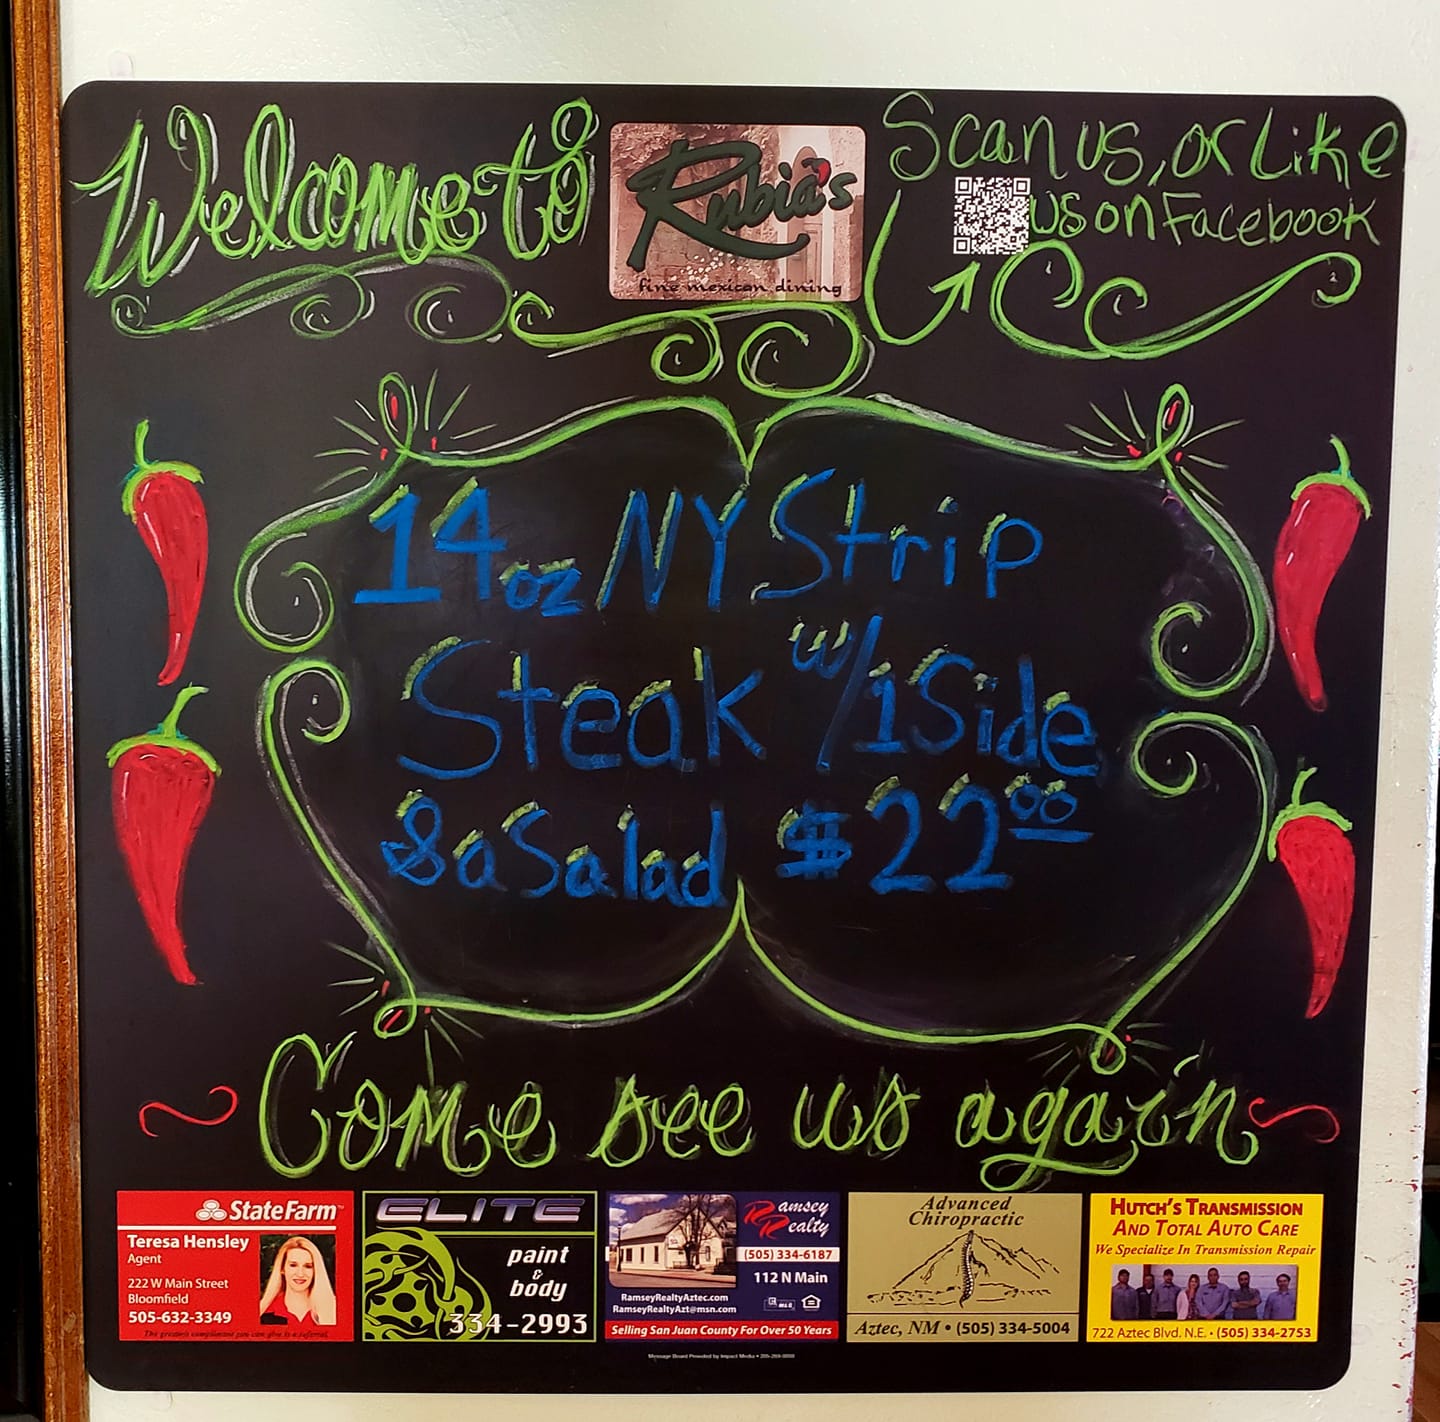 Welcome to
Rubia's
fine mexican dining
Scan us, or Like
us on Facebook
14oz NY Strip
Steak w/1 Side
& a Salad $22.00
Come see us again
StateFarm
Teresa Hensley
Agent
222 W Main Street
Bloomfield
505-632-3349
The greatest compliment you can give is a referral.
ELITE
paint
&
body
334-2993
Ramsey
Realty
(505) 334-6187
112 N Main
RamseyRealtyAztec.com
RamseyRealtyAzt@msn.com
Selling San Juan County For Over 50 Years
Advanced
Chiropractic
Aztec, NM • (505) 334-5004
HUTCH'S TRANSMISSION
AND TOTAL AUTO CARE
We Specialize In Transmission Repair
722 Aztec Blvd. N.E. • (505) 334-2753
Message Board Provided by Impact Media •